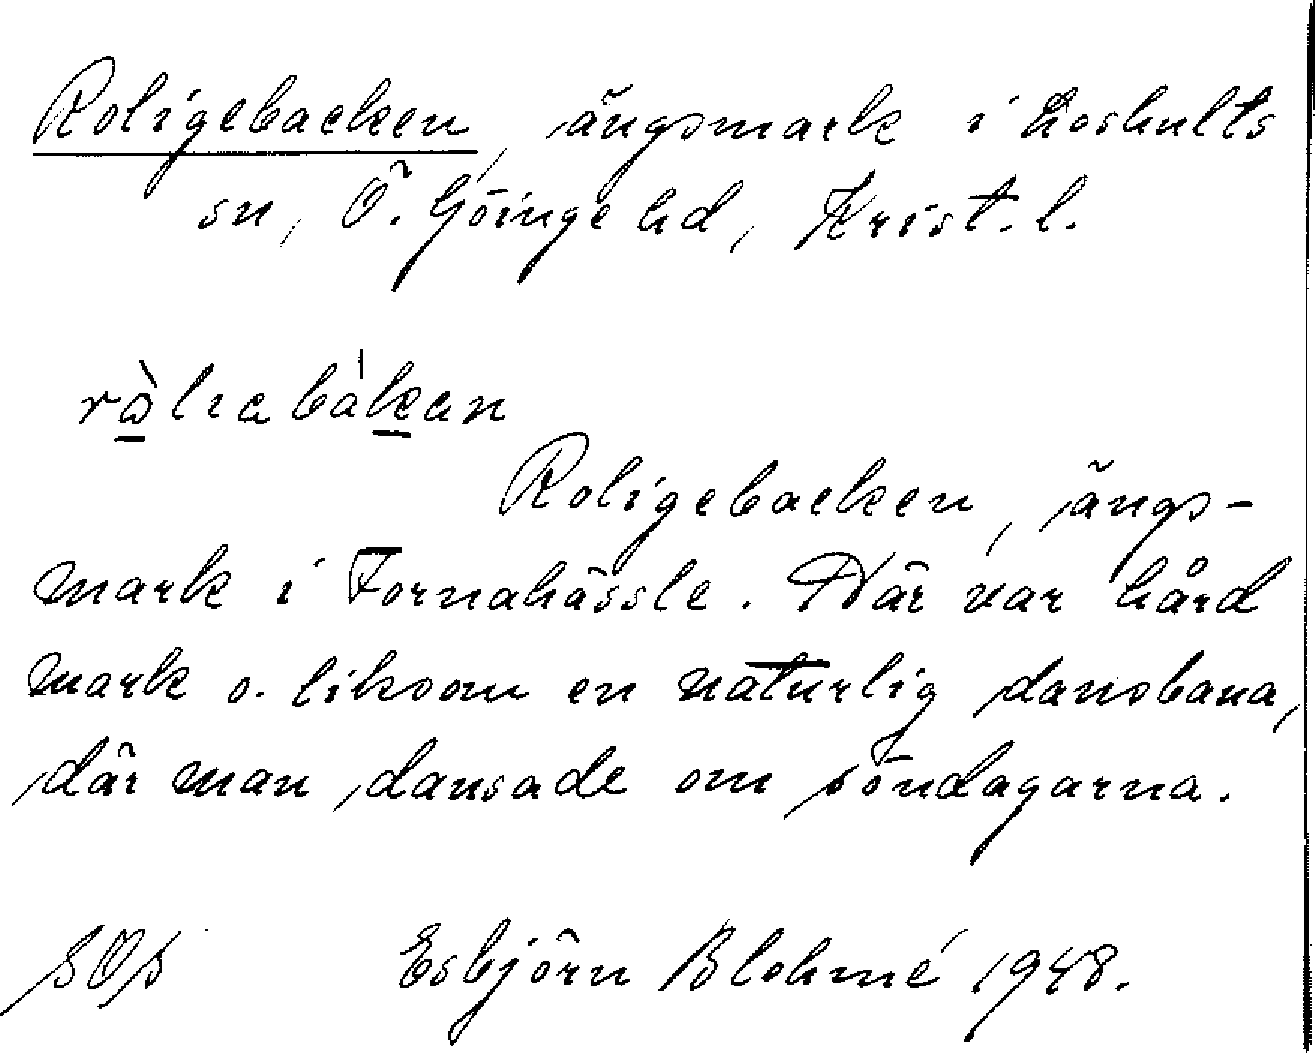 Roligebacken, ängsmark i Loshults
sn, Ö. Göinge hd, Krist. l.
Roligebacken, ängs-
mark i Tornahässle. Där var hård
mark o. liksom en naturlig dansbana,
där man dansade om söndagarna.
SOS Esbjörn Blohmé 1948.